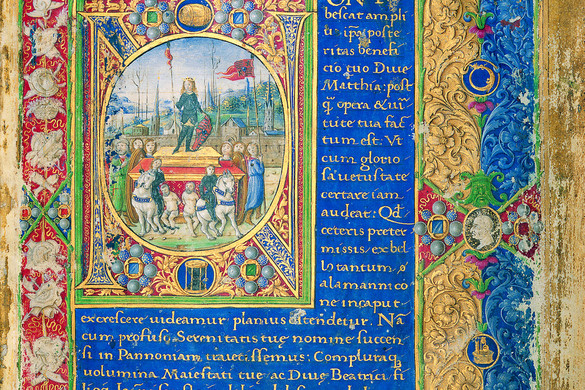 bescat ampli
us ipsa poste
ritas benefi
cio tuo Diue
Matthia: post
q̃ opera & uir
tute tua fac
tum est. Vt
cum glorio
sa uetustate
certare iam
audeat: Qd
ceteris preter
missis ex bel
lo tantum
alamannico
ne in caput
excrescere uideamur planius ostendetur. Na
cum profusi Serenitatis tuę nomine succen
si in Pannoniam traiecissemus: Compluraq
uolumina Maiestati tuę ac Diuę Beatrici